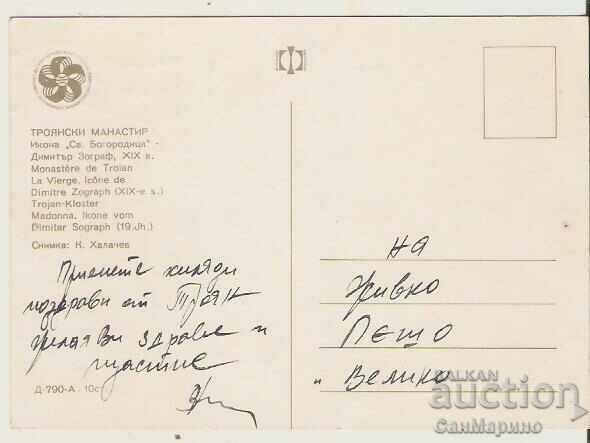 ТРОЯНСКИ МАНАСТИР
Икона „Св. Богородица" -
Димитър Зограф, XIX в.
Monastère de Troian
La Vierge. Icône de
Dimitre Zograph (XIX-e s.)
Trojan-Kloster
Madonna. Ikone vom
Dimitar Sograph (19. Jh.)
Снимка: К. Халачев
Приемете хиляди
поздрави от Троян
желая Ви здраве и
щастие
Д-790-А
на
Живко
Пешо
и Велико
BALKAN
auction
СанМарино